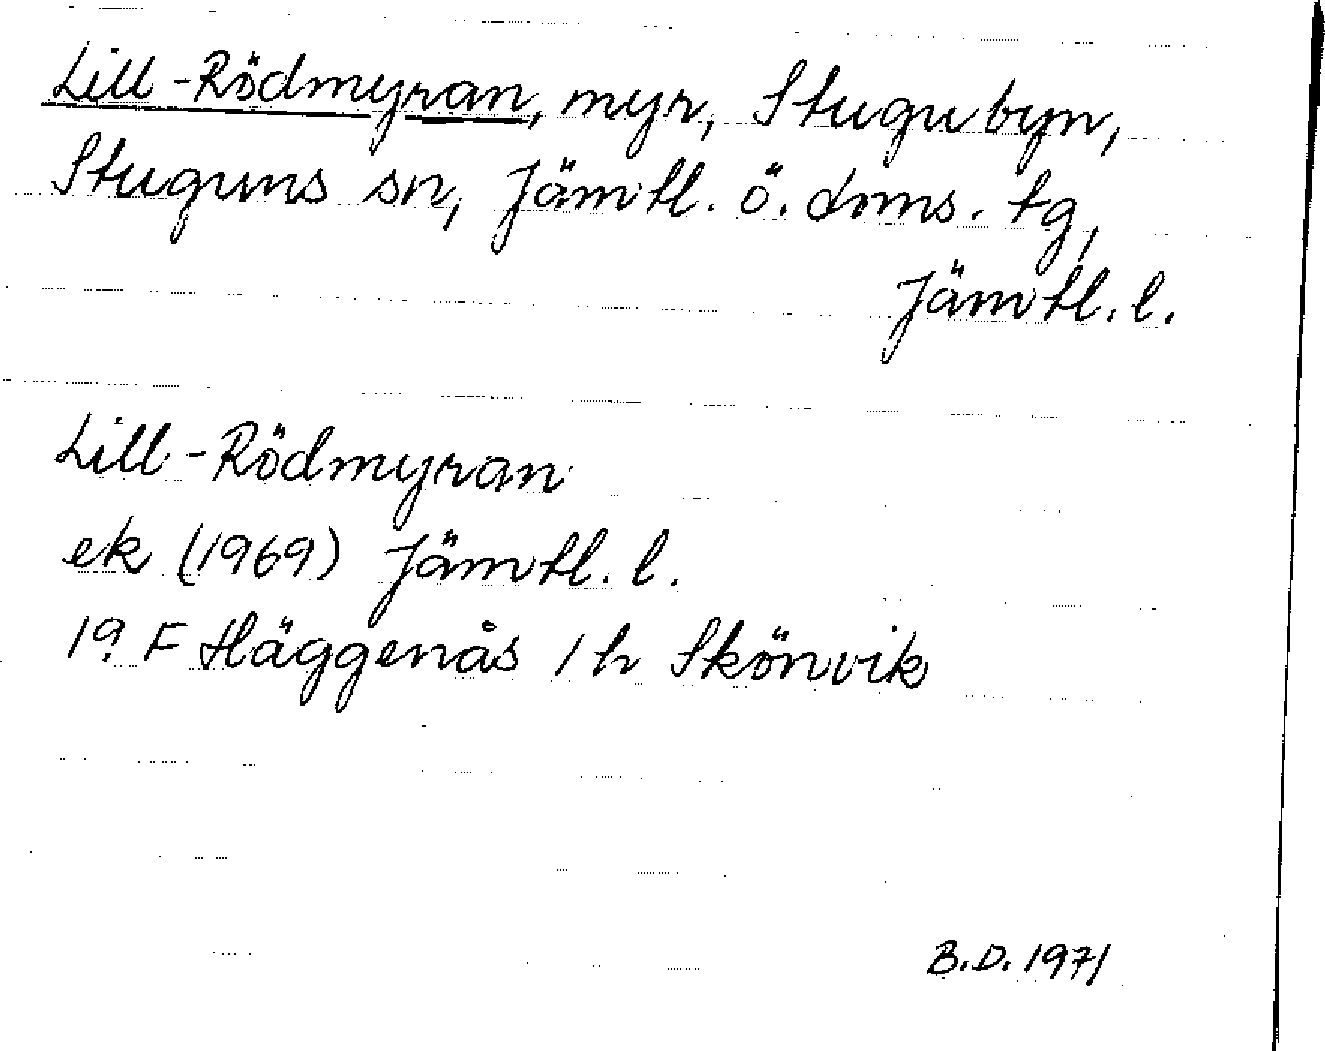 Lill-Rödmyran, myr, Stugubyn,
Stuguns sn, Jämtl. ö. doms. tg,
Jämtl. l.
Lill-Rödmyran
ek (1969) Jämtl. l.
19 F Häggenås 1 h Skönvik
B.D. 1971